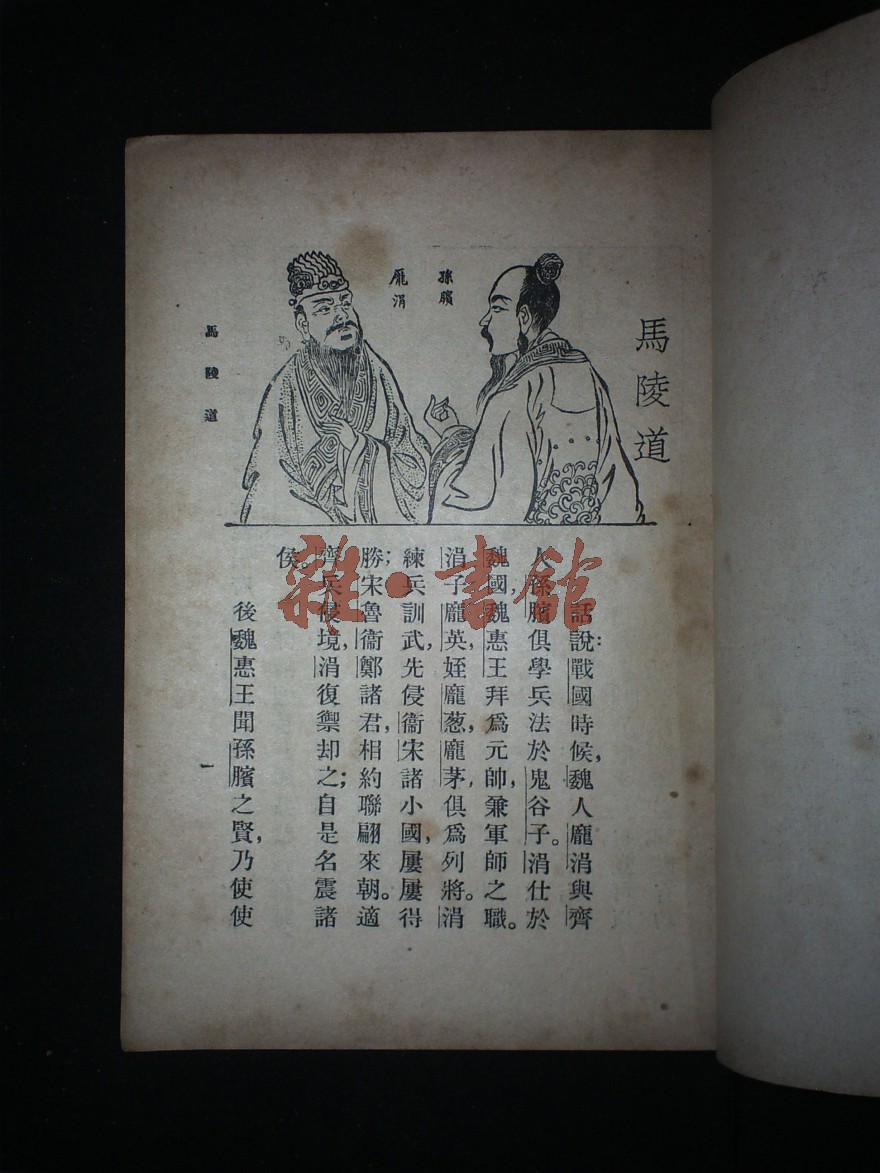 馬陵道
孫臏
龐涓
話說：戰國時候，魏人龐涓與齊
人孫臏俱學兵法於鬼谷子。涓仕於
魏國，魏惠王拜爲元帥，兼軍師之職。
涓子龐英，姪龐葱，龐茅，俱爲列將。涓
練兵訓武，先侵衞宋諸小國，屢屢得
勝；宋魯衞鄭諸君，相約聯翩來朝。適
齊兵侵境，涓復禦却之；自是名震諸
侯。
後魏惠王聞孫臏之賢，乃使使
馬陵道
一
雜·書館